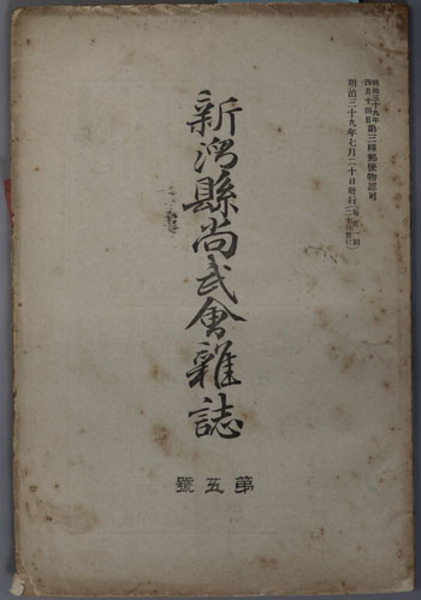 明治三十九年
四月十四日第三種郵便物認可
明治三十九年七月二十日發行(毎月一回二十日發行)
新潟縣尚武會雜誌
第五號